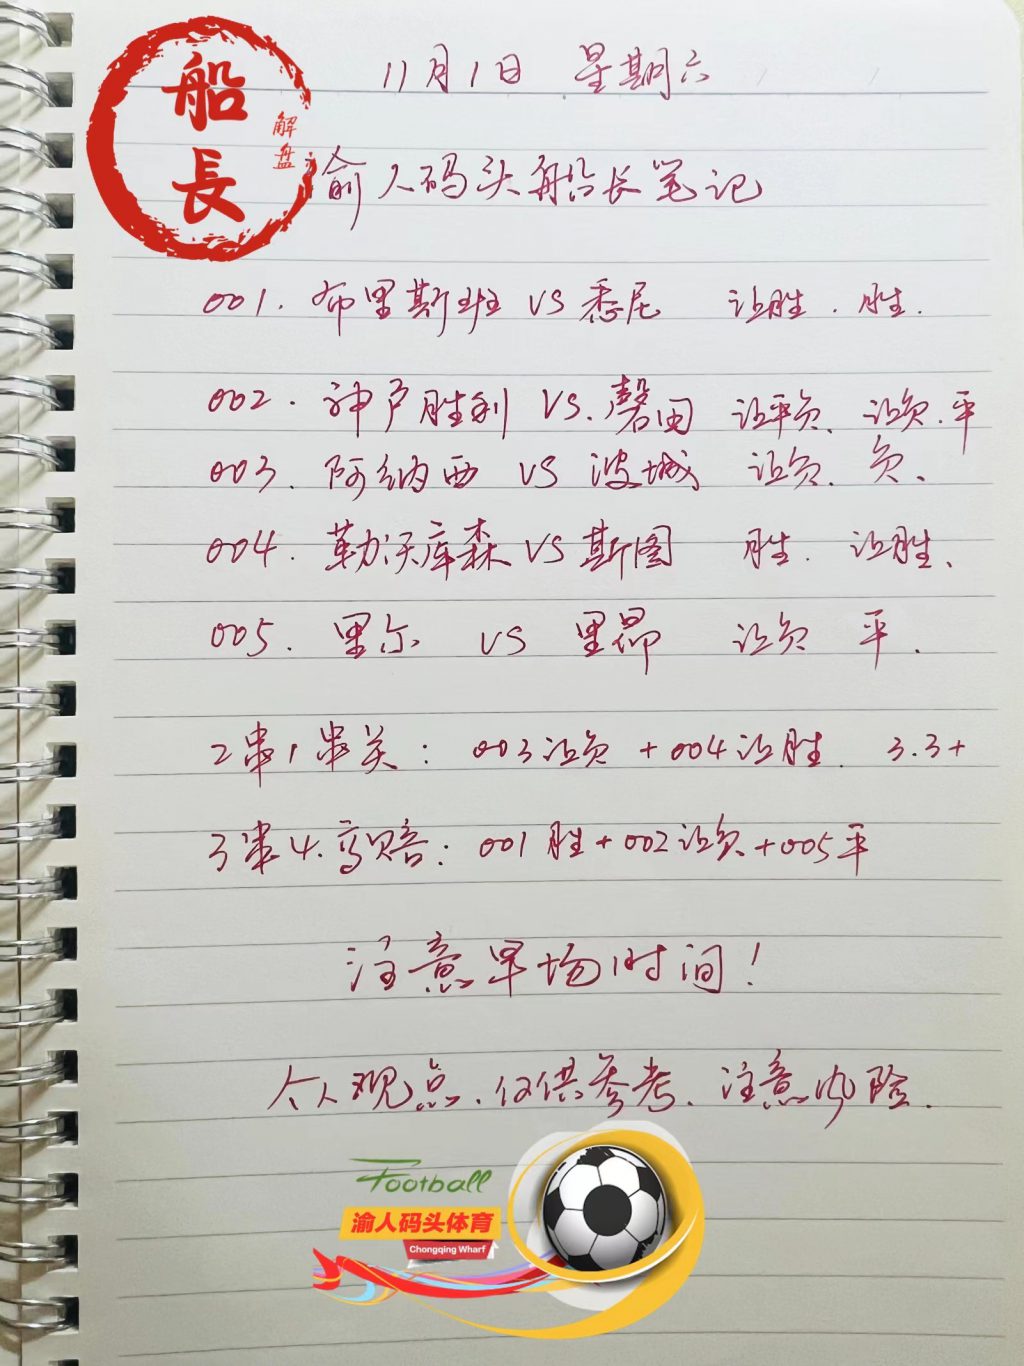 船長
解盘
11月1日 星期六
渝人码头船长笔记
001. 布里斯班 VS 悉尼 让胜. 胜.
002. 神户胜利 VS. 磬田 让平负、让负.平
003. 阿纳西 VS 波城 让负. 负、
004. 勒沃库森 VS 斯图 胜. 让胜、
005. 里尔 VS 里昂 让负 平.
2串1串关: 003让负 + 004让胜. 3.3+
3串4.高赔: 001胜+002让负+005平
注意早场时间!
个人观点.仅供参考.注意风险.
Football
渝人码头体育
Chongqing Wharf